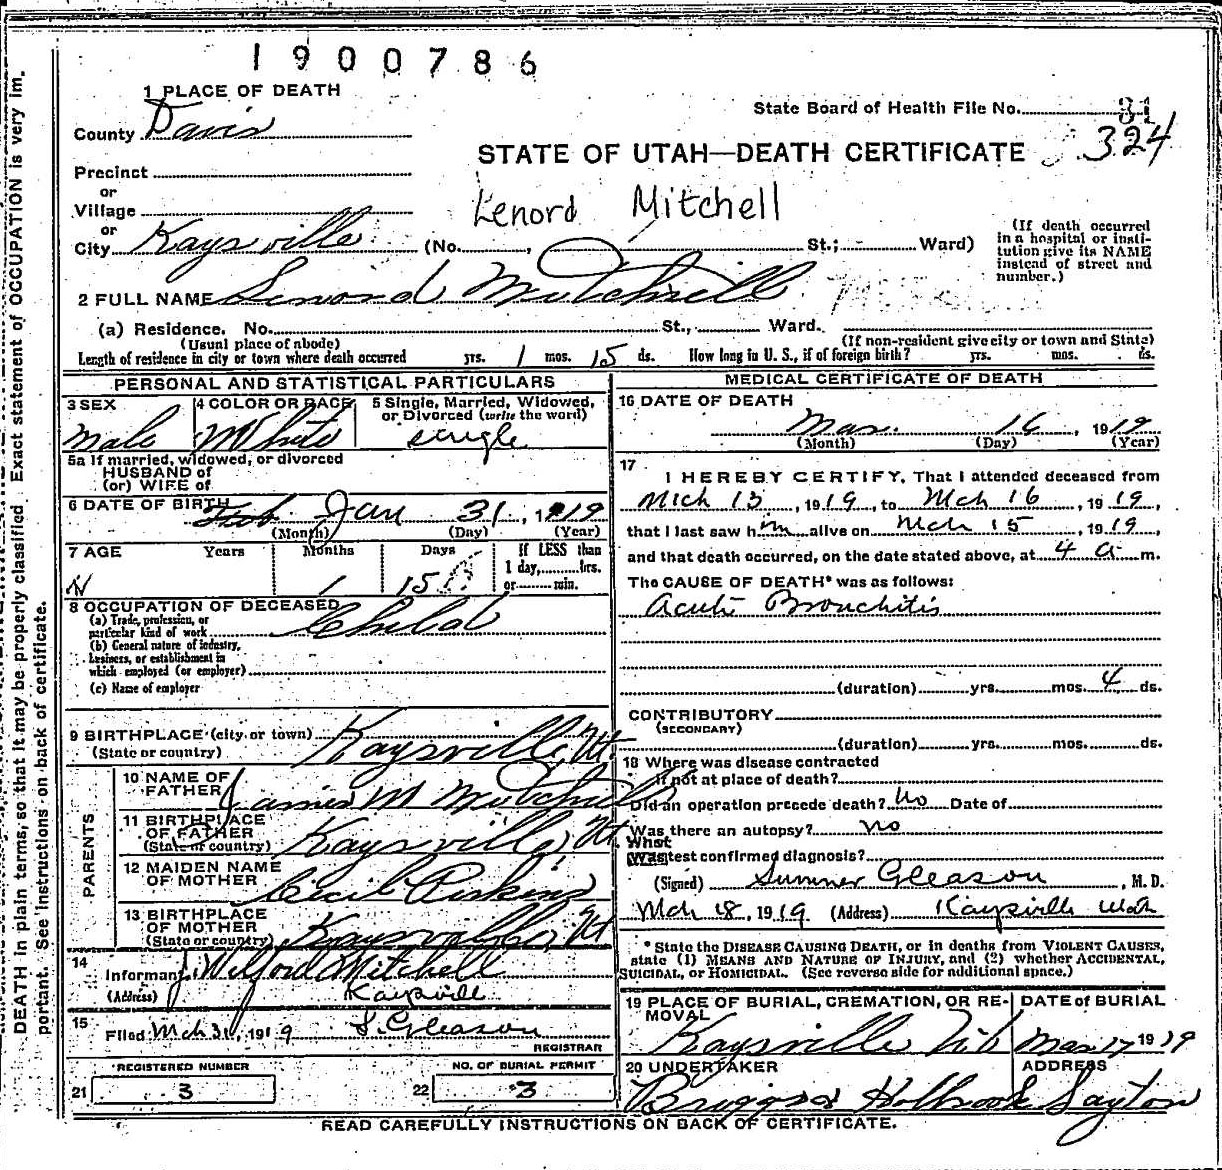 1900786
1 PLACE OF DEATH
State Board of Health File No. 31
County Davis
324
STATE OF UTAH—DEATH CERTIFICATE
Precinct
or
Village
Lenord Mitchell
or
City Kaysville (No. , St.; Ward)
(If death occurred
in a hospital or insti-
tution give its NAME
instead of street and
number.)
2 FULL NAME Lenord Mitchell
(a) Residence. No. St., Ward.
(Usual place of abode) (If non-resident give city or town and State)
Length of residence in city or town where death occurred yrs. 1 mos. 15 ds. How long in U. S., if of foreign birth? yrs. mos. ds.
PERSONAL AND STATISTICAL PARTICULARS
3 SEX 4 COLOR OR RACE 5 Single, Married, Widowed,
or Divorced (write the word)
Male White single
5a If married, widowed, or divorced
HUSBAND of
(or) WIFE of
6 DATE OF BIRTH Feb Jan 31, 1919
(Month) (Day) (Year)
7 AGE Years Months Days If LESS than
1 day, hrs.
or min.
1 15
8 OCCUPATION OF DECEASED
(a) Trade, profession, or
particular kind of work Child
(b) General nature of industry,
business, or establishment in
which employed (or employer)
(c) Name of employer
9 BIRTHPLACE (city or town) Kaysville, Ut
(State or country)
PARENTS
10 NAME OF
FATHER James M Mitchell
11 BIRTHPLACE
OF FATHER Kaysville, Ut
(State or country)
12 MAIDEN NAME
OF MOTHER Cecil
13 BIRTHPLACE
OF MOTHER Kaysville, Ut
(State or country)
14
Informant J. Wilford Mitchell
(Address) Kaysville
15
Filed Mch 31, 1919 S. Gleason
REGISTRAR
REGISTERED NUMBER NO. OF BURIAL PERMIT
21 3 22 3
MEDICAL CERTIFICATE OF DEATH
16 DATE OF DEATH
Mar. 16, 1919
(Month) (Day) (Year)
17
I HEREBY CERTIFY, That I attended deceased from
Mch 13, 1919, to Mch 16, 1919,
that I last saw him alive on Mch 15, 1919,
and that death occurred, on the date stated above, at 4 a m.
The CAUSE OF DEATH* was as follows:
Acute Bronchitis
(duration) yrs. mos. 4 ds.
CONTRIBUTORY
(SECONDARY)
(duration) yrs. mos. ds.
18 Where was disease contracted
if not at place of death?
Did an operation precede death? No Date of
Was there an autopsy? no
What
test confirmed diagnosis?
(Signed) Sumner Gleason, M. D.
Mch 18, 1919 (Address) Kaysville Utah
* State the DISEASE CAUSING DEATH, or in deaths from VIOLENT CAUSES,
state (1) MEANS AND NATURE OF INJURY, and (2) whether ACCIDENTAL,
SUICIDAL, or HOMICIDAL. (See reverse side for additional space.)
19 PLACE OF BURIAL, CREMATION, OR RE-
MOVAL DATE of BURIAL
Kaysville Mar 17 1919
20 UNDERTAKER ADDRESS
Briggs & Holbrook Layton
READ CAREFULLY INSTRUCTIONS ON BACK OF CERTIFICATE.
DEATH in plain terms, so that it may be properly classified. Exact statement of OCCUPATION is very im-
portant. See instructions on back of certificate.